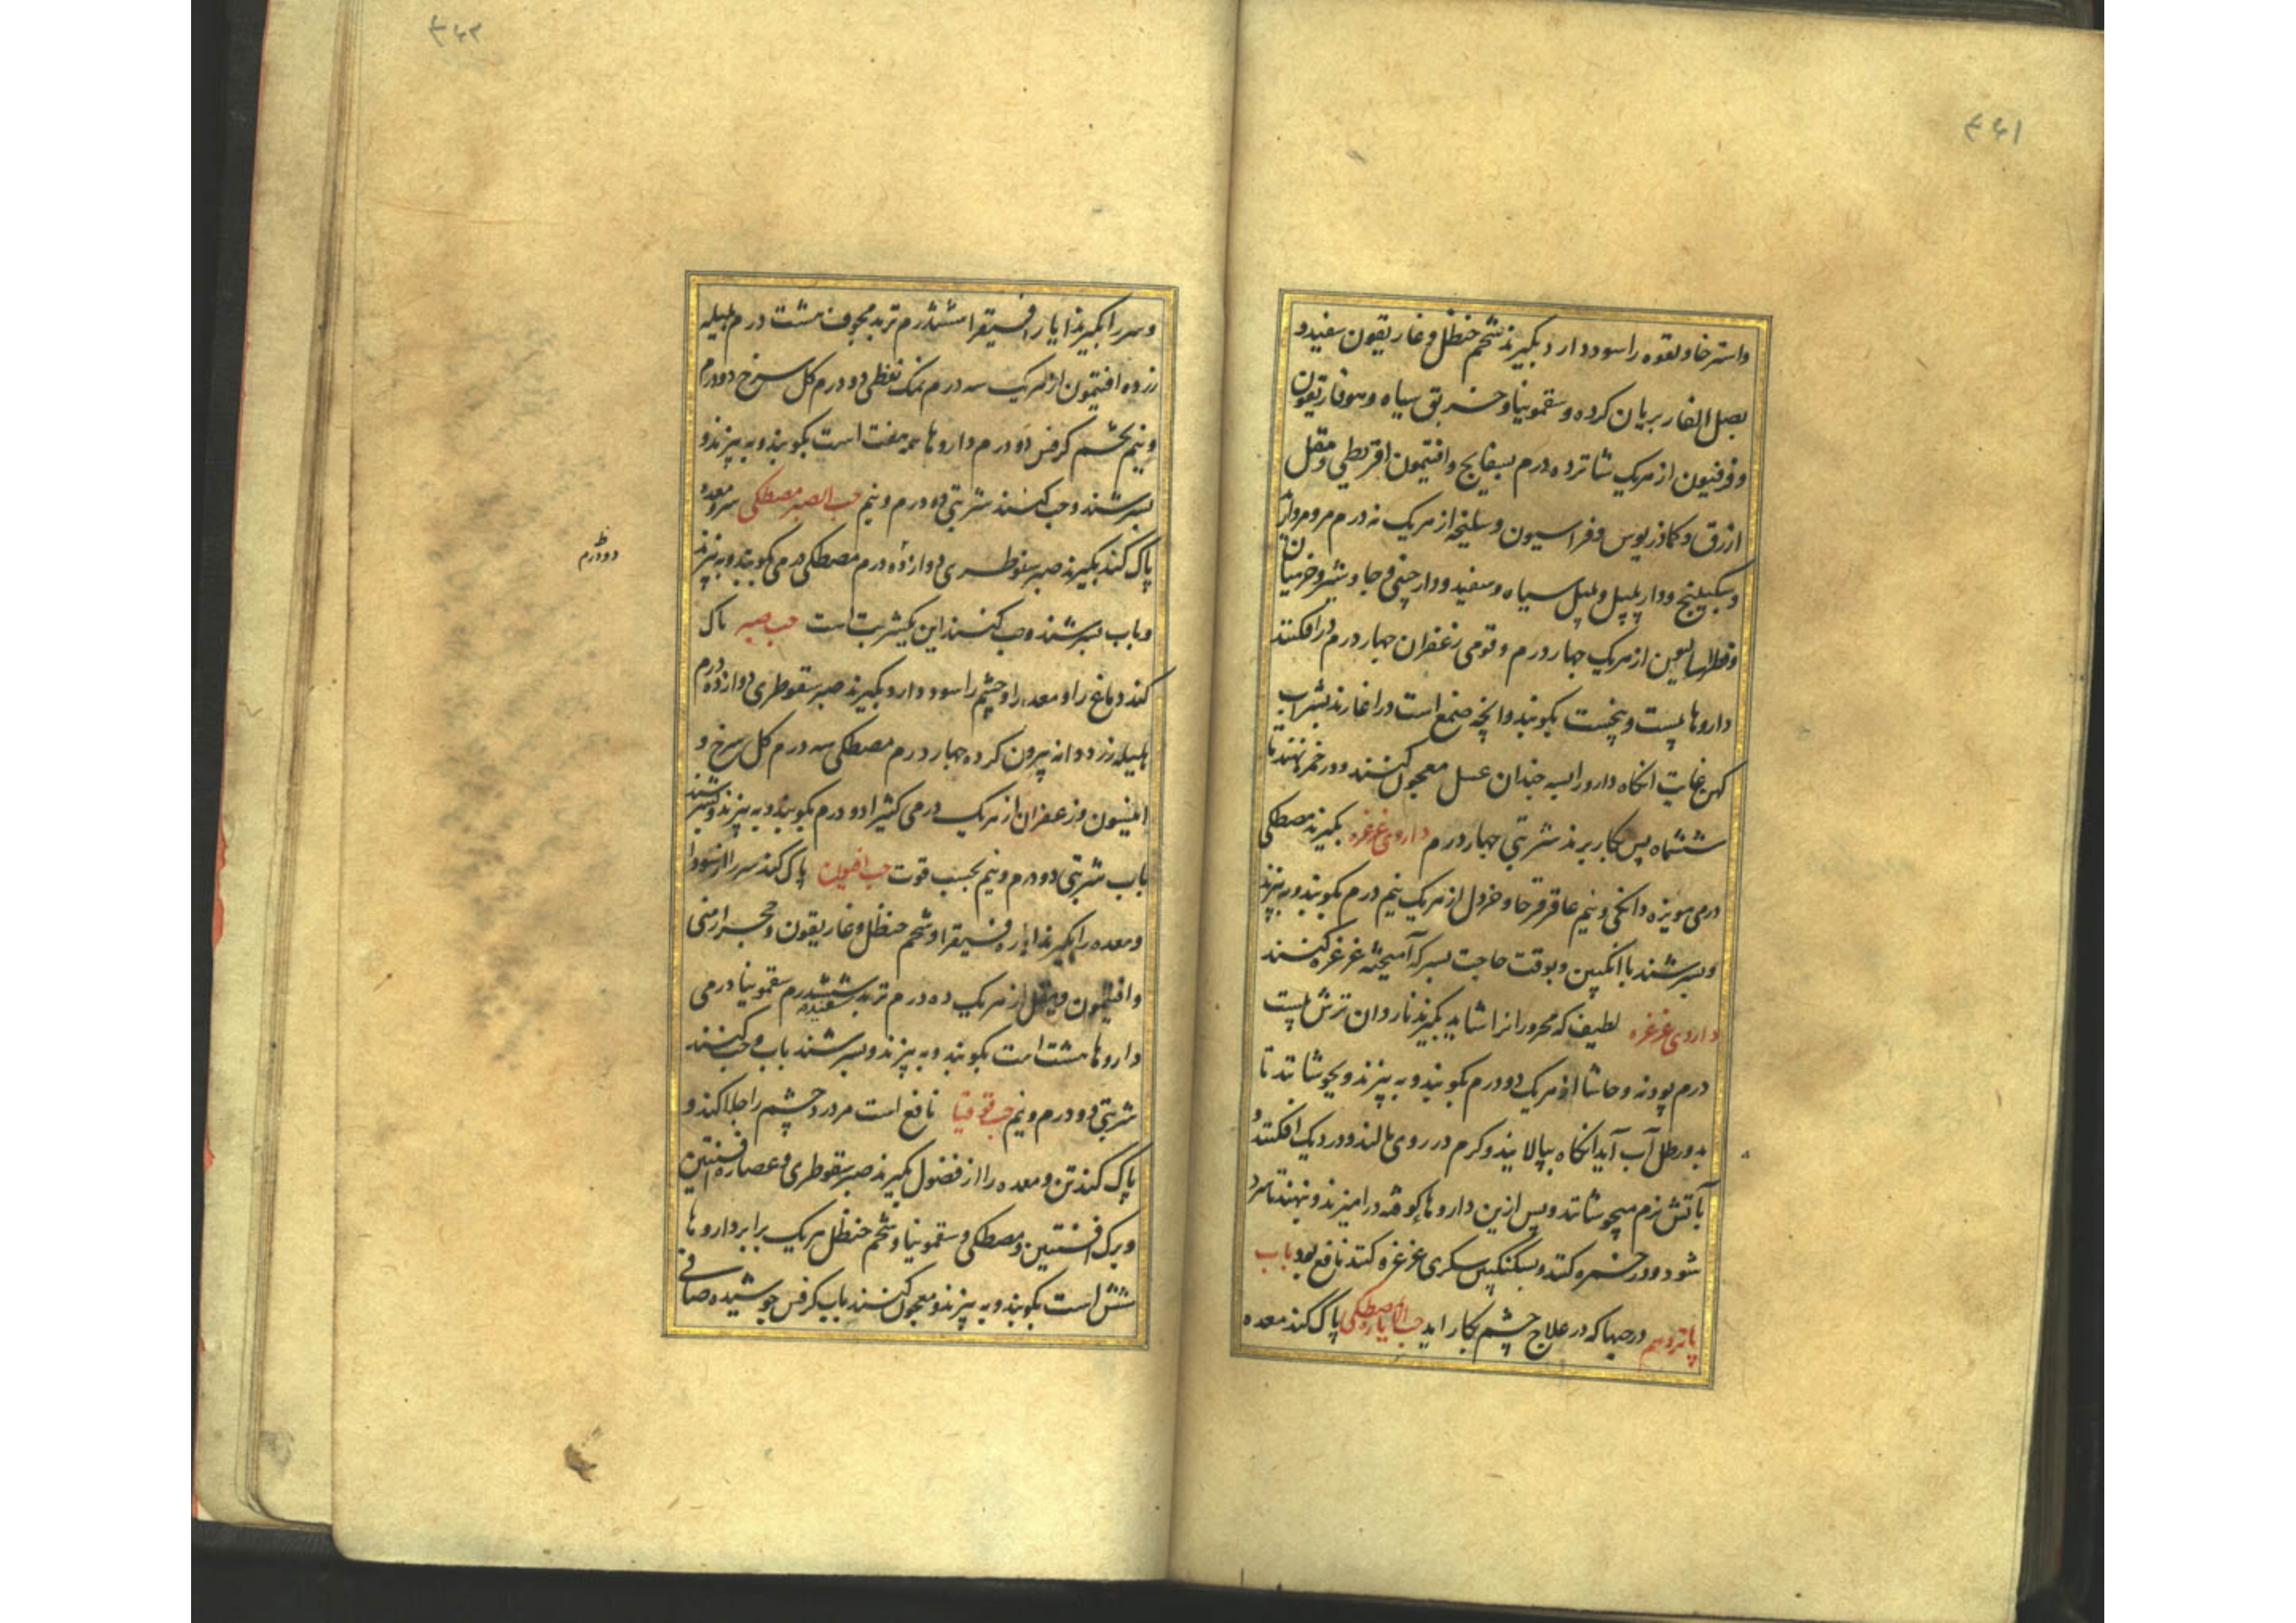 ۳۶۱
واسترخا و لقوه را سود دارد بگیرند شحم حنظل و غاریقون سفید و
بصل الفار بریان کرده و سقمونیا و خربق سیاه و هوفاریقون
و فرفیون از هریک شانزده درم بسفایج و افتیمون اقریطی و مقل
ازرق و کماذریوس و فراسیون و سلیخه از هریک نه درم مر و
و سکبینج و دارپلپل و پلپل سیاه و سفید و دارچینی و جاوشیر و
از هریک چهار درم و قومی زعفران چهار درم درافکنند
داروها پست و پنجست بکوبند و آنچه صمغ است دراغارند بشراب
کهن غایت انکاه دارو را بسه چندان عسل معجون کنند و در خمره نهند تا
ششماه پس بکار برند شربتی چهار درم داروی غرغره بگیرند مصطکی
درمی مویزه دانکی و نیم عاقرقرحا و خردل از هریک نیم درم بکوبند و به بیزند
و بسرشند با انکبین و بوقت حاجت بسرکه آمیخته غرغره کنند
داروی غرغره لطیف که محرورانرا شاید بگیرند ناردان ترش بیست
درم پودنه و حاشا از هریک دو درم بکوبند و به بیزند و بجوشانند تا
بدو رطل آب آید انکاه بپالایند و کرم در روی مالند و در دیک افکنند و
بآتش نرم میجوشانند و پس ازین داروها کوفته درامیزند و بنهند تا سرد
شود و در خمره کنند و بسکنکبین سکری غرغره کنند نافع بود باب
پانزدهم در حبها که در علاج چشم بکار اید حب الایارج مصطکی پاک کند معده
۳۶۲
و سر را بگیرند ایارا فیقرا ششدرم تربد مجوف هشت درم هلیله
زرد و افتیمون از هریک سه درم نمک نفطی دو درم کل سرخ دو درم
و نیم تخم کرفس دو درم داروها همه هفت است بکوبند و به بیزند و
بسرشند و حب کنند شربتی ده درم و نیم حب الصبر مصطکی سر و معده
پاک کند بگیرند صبر سقوطری دوازده درم مصطکی درمی بکوبند و به بیزند
دودرم
و باب بسرشند و حب کنند این یکشربت است حب صبر پاک
کند دماغ را و معده را و چشم را سود دارد بگیرند صبر سقوطری دوازده درم
هلیله زرد دانه بیرون کرده چهار درم مصطکی سه درم کل سرخ و
انیسون و زعفران از هریک درمی کثیرا دو درم بکوبند و به بیزند و بسرشند
باب شربتی دو درم و نیم بحسب قوت حب افتیمون پاک کند سر را از سودا
و معده را بگیرند ایاره فیقرا و شحم حنظل و غاریقون و حجر ارمنی
و افتیمون و مقل از هریک ده درم تربد سفید ششدرم سقمونیا درمی
داروها هشت است بکوبند و به بیزند و بسرشند باب و حب کنند
شربتی دو درم و نیم حب قوقیا نافع است مر درد چشم را جلا کند و
پاک کند تن و معده را از فضول بگیرند صبر سقوطری و عصاره افسنتین
و برک افسنتین و مصطکی و سقمونیا و شحم حنظل هریک برابر داروها
شش است بکوبند و به بیزند و معجون کنند باب کرفس جوشیده صافی